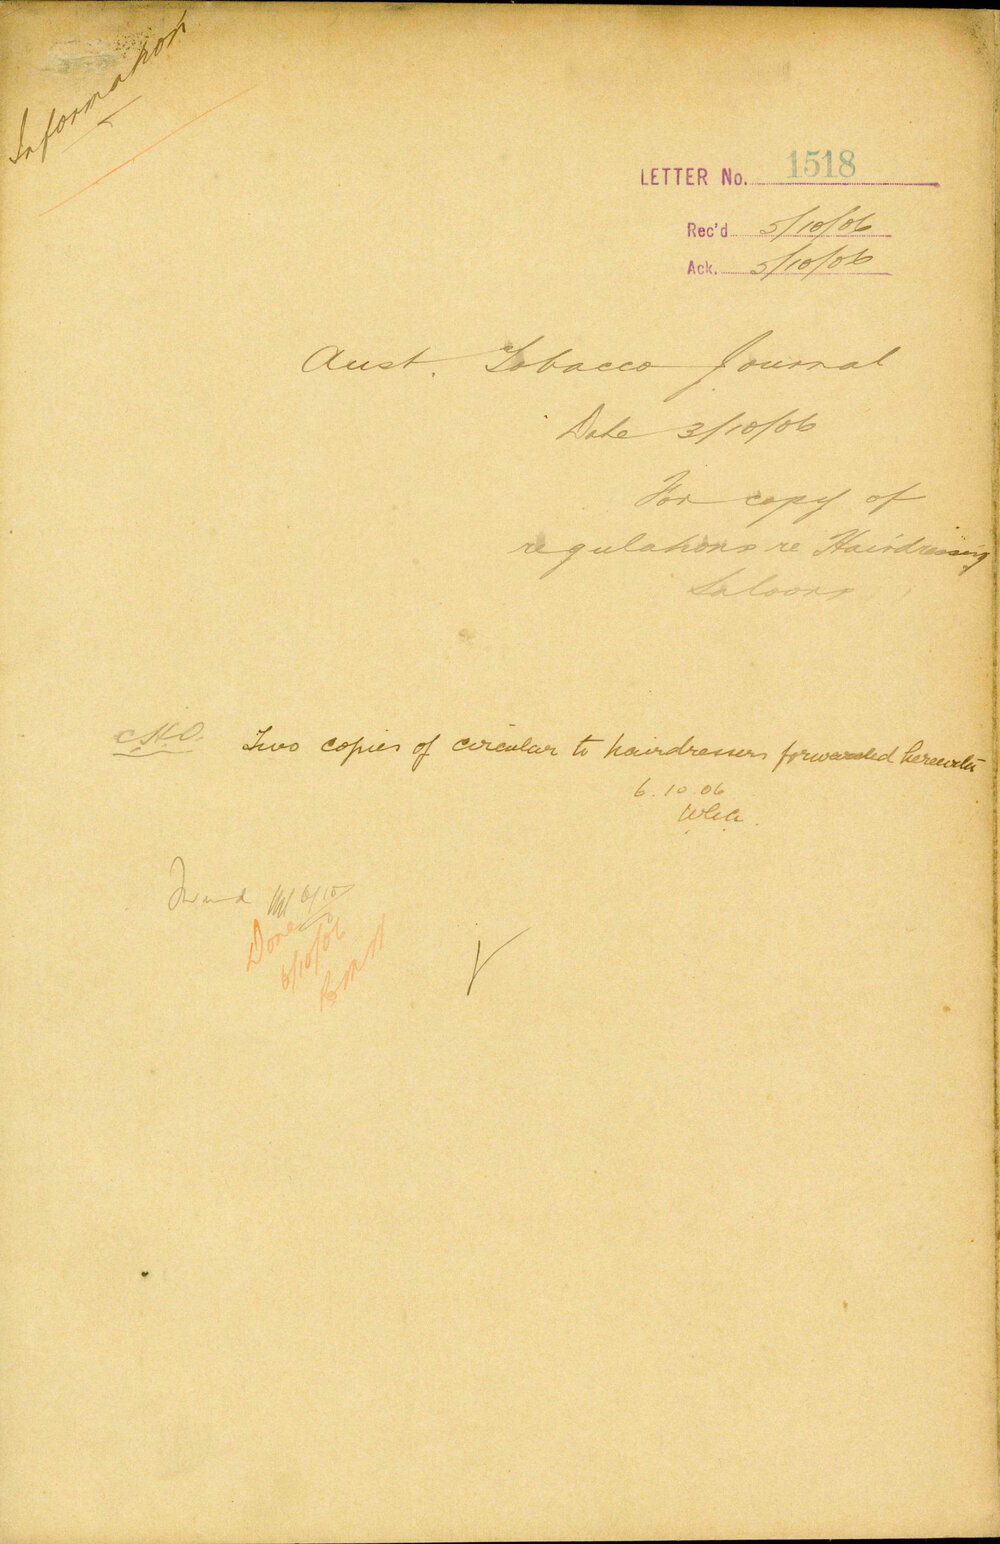 Information
LETTER No. 1518
Rec'd 5/10/06
Ack. 5/10/06
Aust. Tobacco Journal
Date 3/10/06
For copy of
regulations re Hairdressing
Saloons
C.H.O. Two copies of circular to hairdressers forwarded herewith
6.10.06
6/10
Done
6/10/06